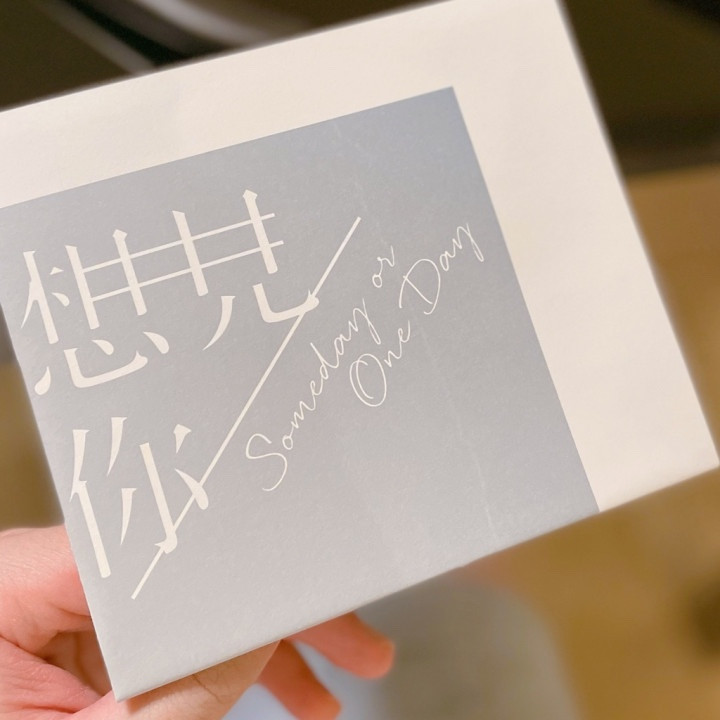 想見
你
Someday or
One Day